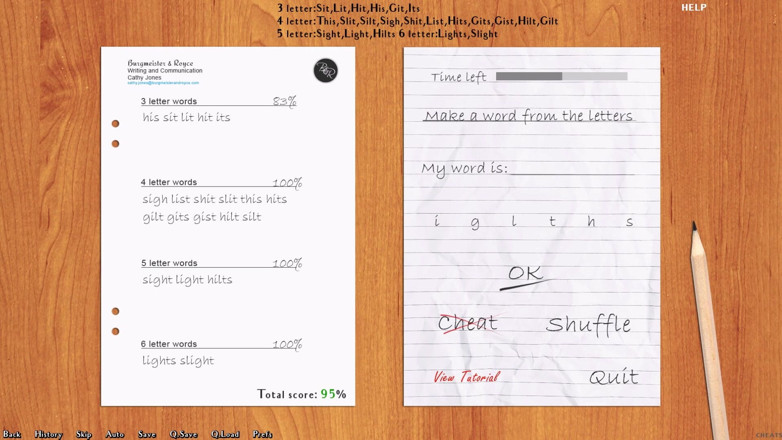 3 letter:Sit,Lit,Hit,His,Git,Its
4 letter:This,Slit,Silt,Sigh,Shit,List,Hits,Gits,Gist,Hilt,Gilt
5 letter:Sight,Light,Hilts 6 letter:Lights,Slight
HELP
Burgmeister & Royce
Writing and Communication
Cathy Jones
cathy.jones@burgmeisterandroyce.com
B&R
3 letter words 83%
his sit lit hit its
4 letter words 100%
sigh list shit slit this hits
gilt gits gist hilt silt
5 letter words 100%
sight light hilts
6 letter words 100%
lights slight
Total score: 95%
Time left
Make a word from the letters
My word is:
i g l t h s
OK
Cheat Shuffle
View Tutorial Quit
Back History Skip Auto Save Q.Save Q.Load Prefs
CHEAT